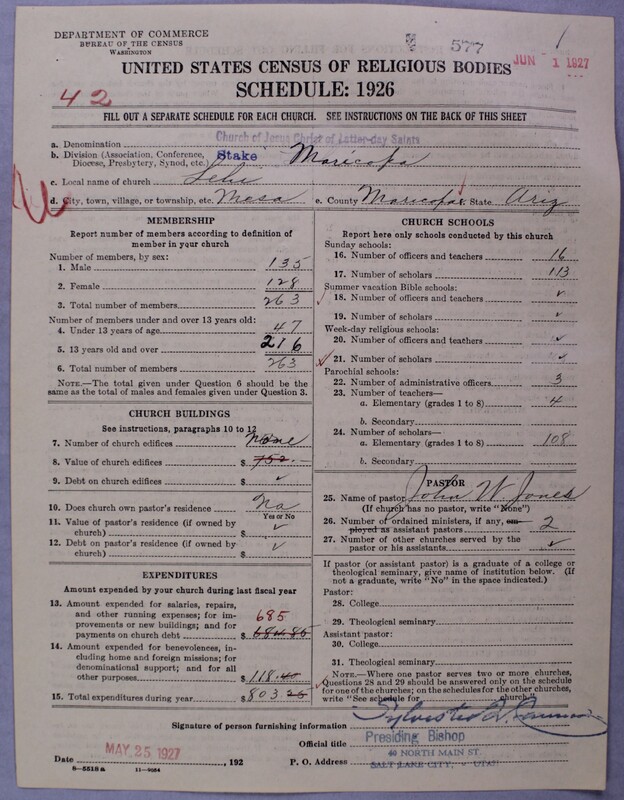 DEPARTMENT OF COMMERCE
BUREAU OF THE CENSUS
WASHINGTON
577
JUN 1 1927
UNITED STATES CENSUS OF RELIGIOUS BODIES
SCHEDULE: 1926
42
FILL OUT A SEPARATE SCHEDULE FOR EACH CHURCH. SEE INSTRUCTIONS ON THE BACK OF THIS SHEET
a. Denomination Church of Jesus Christ of Latter-day Saints
b. Division (Association, Conference, Diocese, Presbytery, Synod, etc.) Stake Maricopa
c. Local name of church Lehi
d. City, town, village, or township, etc. Mesa e. County Maricopa State Ariz
MEMBERSHIP
Report number of members according to definition of
member in your church
Number of members, by sex:
1. Male 135
2. Female 128
3. Total number of members 263
Number of members under and over 13 years old:
4. Under 13 years of age 47
5. 13 years old and over 216
6. Total number of members 263
NOTE.—The total given under Question 6 should be the
same as the total of males and females given under Question 3.
CHURCH BUILDINGS
See instructions, paragraphs 10 to 12
7. Number of church edifices None
8. Value of church edifices $ 752.-
9. Debt on church edifices $ ✓
10. Does church own pastor's residence? No
Yes or No
11. Value of pastor's residence (if owned by
church) $ ✓
12. Debt on pastor's residence (if owned by
church) $ ✓
EXPENDITURES
Amount expended by your church during last fiscal year
13. Amount expended for salaries, repairs,
and other running expenses; for im-
provements or new buildings; and for 685
payments on church debt $ 684.85
14. Amount expended for benevolences, in-
cluding home and foreign missions; for
denominational support; and for all
other purposes $ 118.40
15. Total expenditures during year $ 803 25
CHURCH SCHOOLS
Report here only schools conducted by this church
Sunday schools:
16. Number of officers and teachers 16
17. Number of scholars 113
Summer vacation Bible schools:
18. Number of officers and teachers ✓
19. Number of scholars ✓
Week-day religious schools:
20. Number of officers and teachers ✓
21. Number of scholars ✓
Parochial schools:
22. Number of administrative officers 3
23. Number of teachers—
a. Elementary (grades 1 to 8) 4
b. Secondary
24. Number of scholars—
a. Elementary (grades 1 to 8) 108
b. Secondary
PASTOR
25. Name of pastor John W Jones
(If church has no pastor, write "None")
26. Number of ordained ministers, if any, em-
ployed as assistant pastors 2
27. Number of other churches served by the
pastor or his assistants ✓
If pastor (or assistant pastor) is a graduate of a college or
theological seminary, give name of institution below. (If
not a graduate, write "No" in the space indicated.)
Pastor:
28. College
29. Theological seminary
Assistant pastor:
30. College
31. Theological seminary
NOTE.—Where one pastor serves two or more churches,
Questions 28 and 29 should be answered only on the schedule
for one of the churches; on the schedules for the other churches,
write "See schedule for church."
Signature of person furnishing information Sylvester Q. Cannon
Official title Presiding Bishop
Date MAY 25 1927, 192 P. O. Address 40 NORTH MAIN ST.
SALT LAKE CITY, UTAH
8—5518a 11—8684